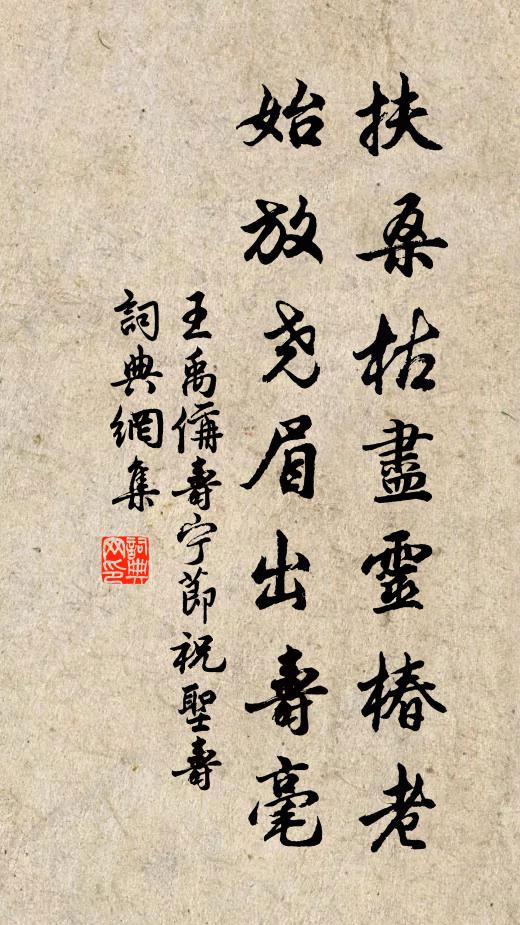 扶桑枯盡靈椿老
始放尧眉出壽毫
王禹偁壽宁節祝聖壽
詞典網集
詞典网印